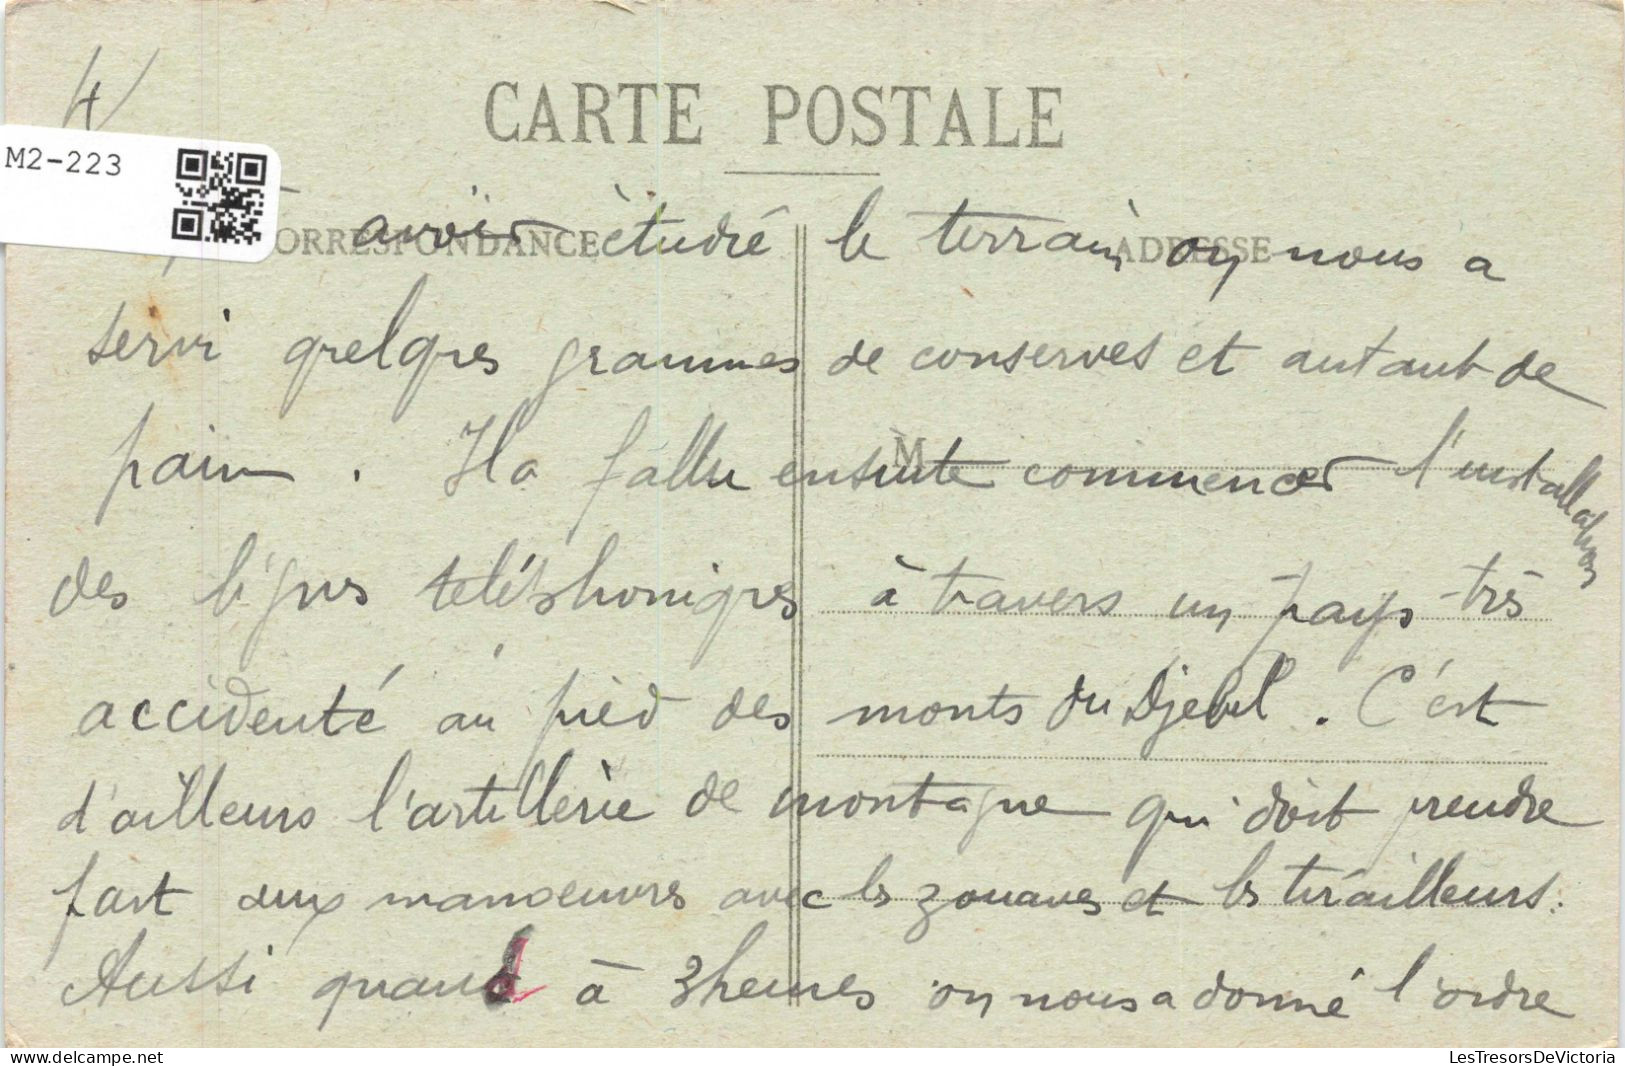 4
CARTE POSTALE
M2-223
ORRESPONDANCE
ADRESSE
avoir étudié le terrain on nous a
servi quelques grammes de conserves et autant de
pain. Il a fallu ensuite commencer l'installation
M
des lignes téléphoniques à travers un pays très
accidenté au pied des monts du Djebel. C'est
d'ailleurs l'artillerie de montagne qui doit prendre
part aux manoeuvres avec les zouaves et les tirailleurs.
Aussi quand à 3 heures on nous a donné l'ordre
LesTresorsDeVictoria